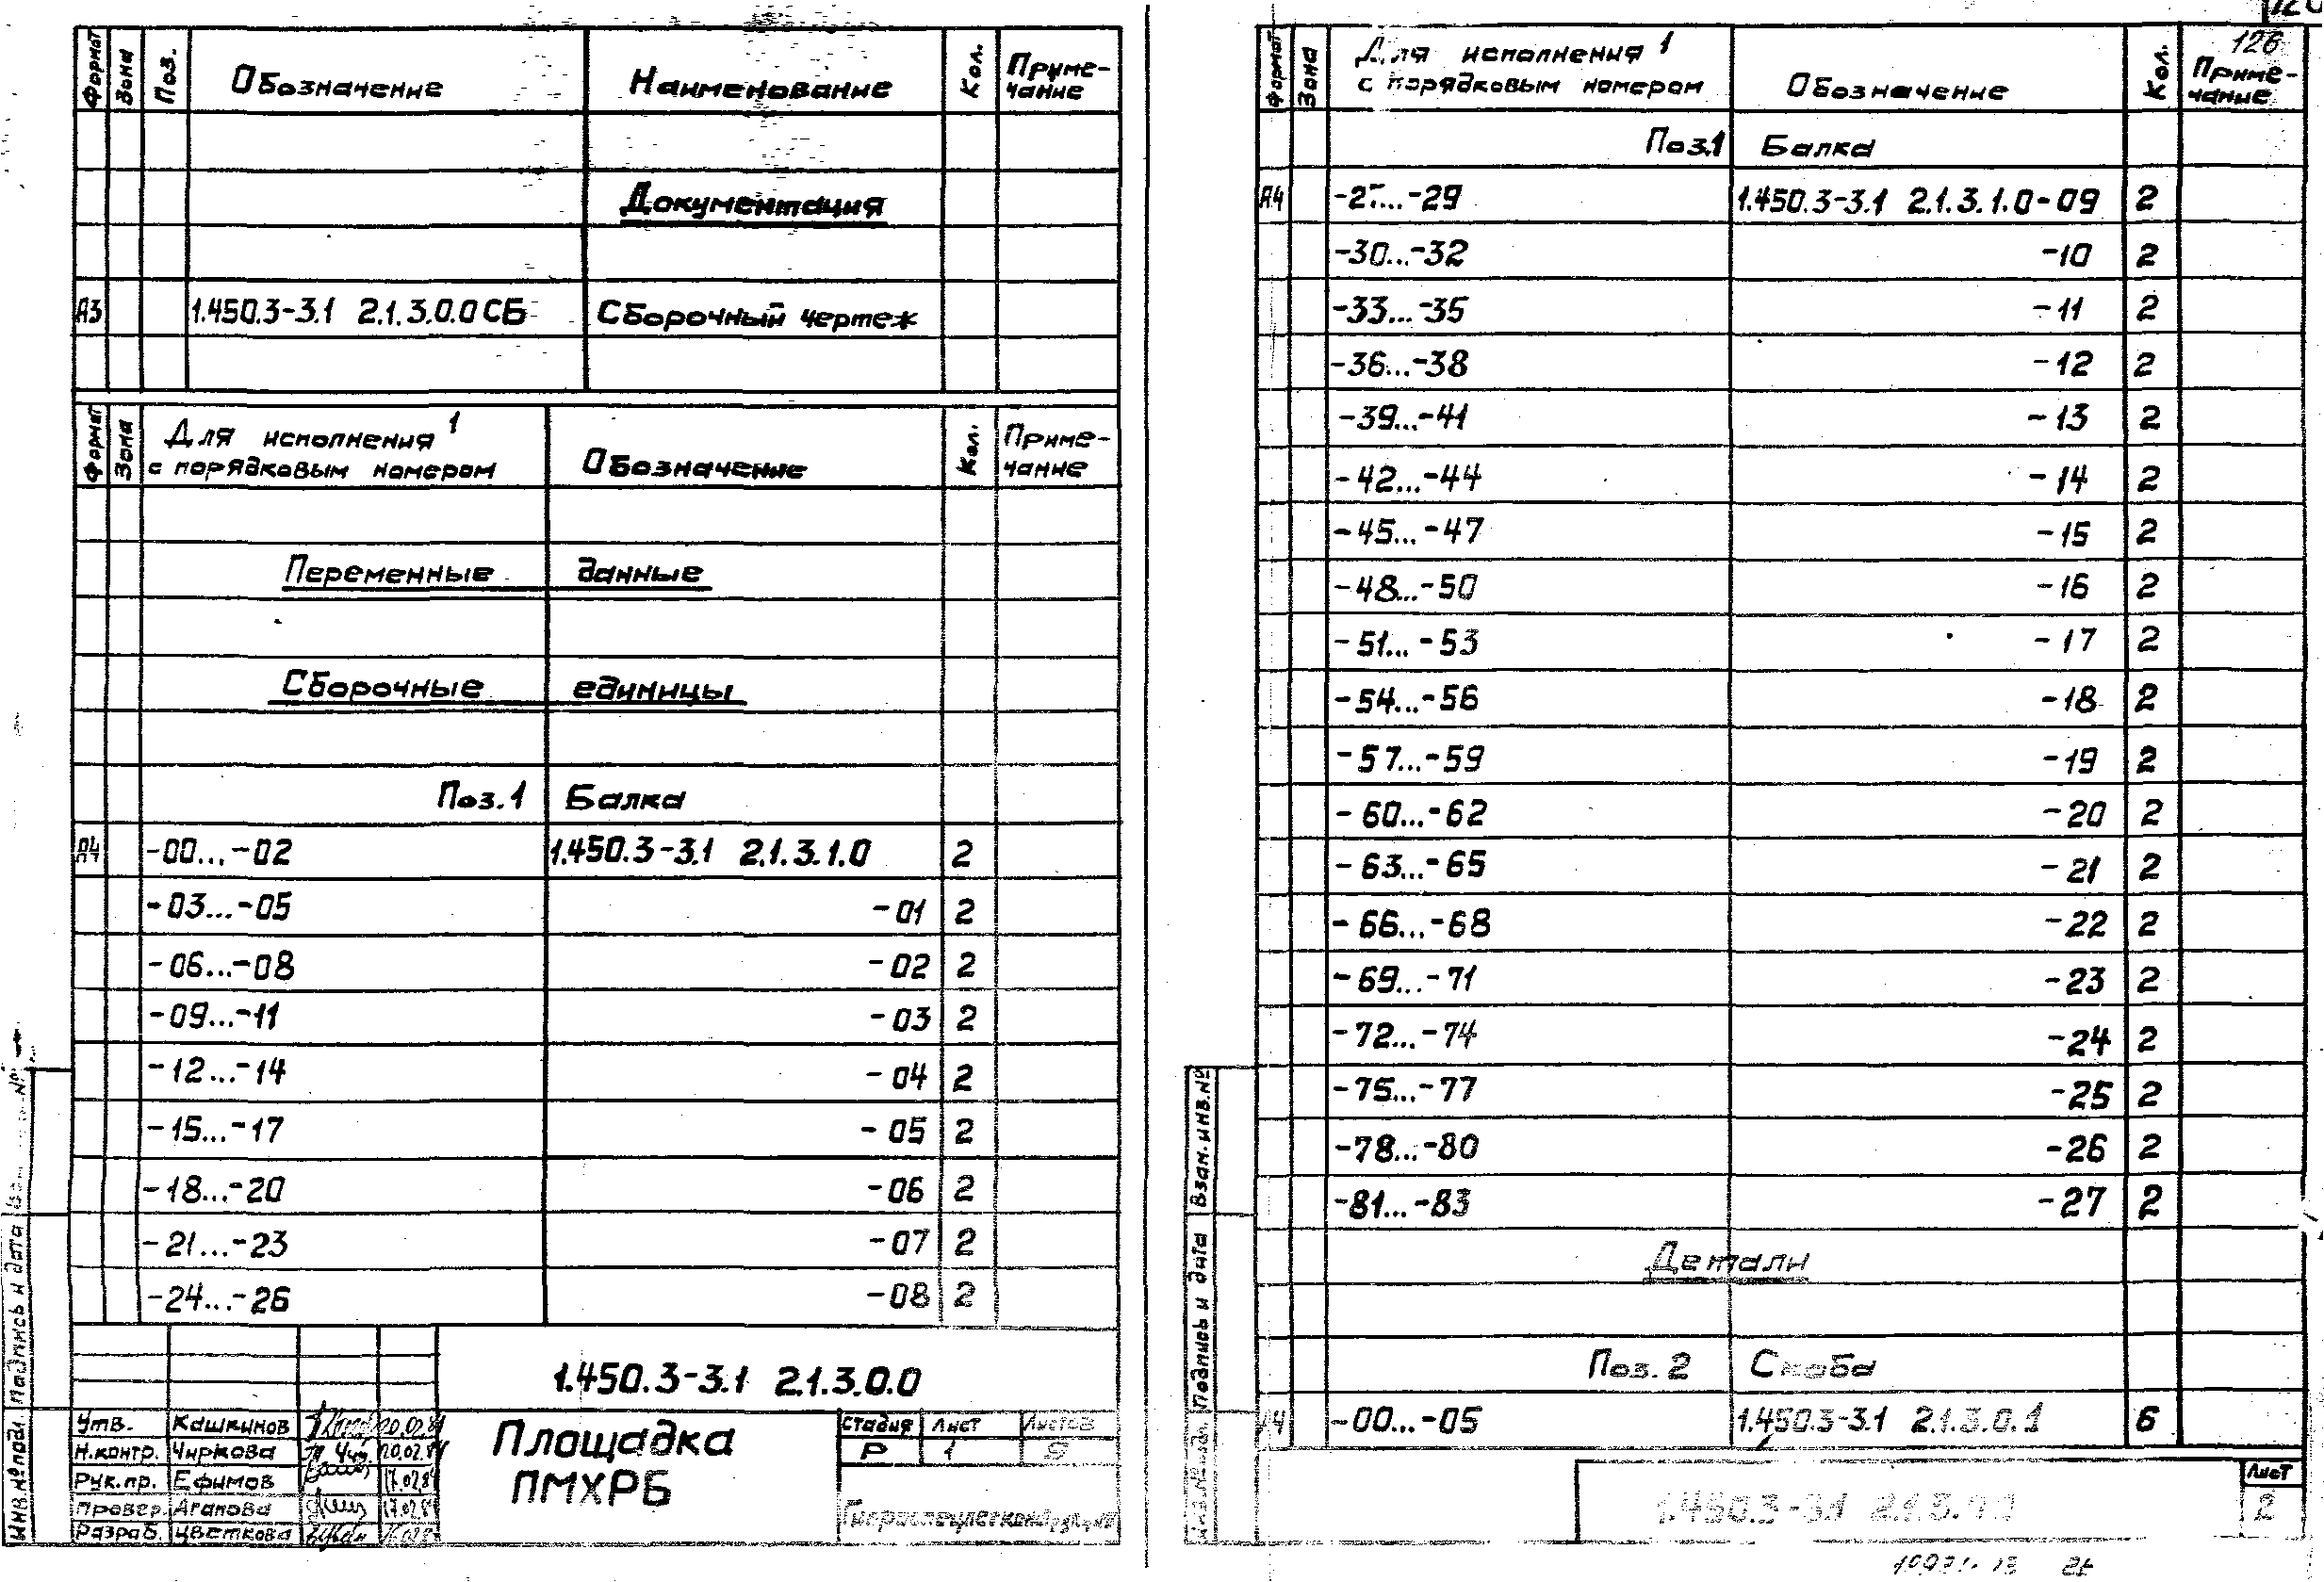 Формат Зона Поз. Обозначение Наименование Кол. Приме-
чание
Документация
А3 1.450.3-3.1 2.1.3.0.0 СБ Сборочный чертеж
Формат Зона Для исполнения 1 Обозначение Кол. Приме-
с порядковым номером чание
Переменные данные
Сборочные единицы
Поз. 1 Балка
А4 -00...-02 1.450.3-3.1 2.1.3.1.0 2
-03...-05 -01 2
-06...-08 -02 2
-09...-11 -03 2
-12...-14 -04 2
-15...-17 -05 2
-18...-20 -06 2
-21...-23 -07 2
-24...-26 -08 2
1.450.3-3.1 2.1.3.0.0
Утв. Кашкинов 20.02.84
Н.контр. Чиркова 20.02.84
Рук.пр. Ефимов 17.02.84
Провер. Агапова 17.02.84
Разраб. Цветкова
Площадка
ПМХРБ
Стадия Лист Листов
Р 1
Инв.№ подл. Подпись и дата
126
Формат Зона Для исполнения 1 Обозначение Кол. Приме-
с порядковым номером чание
Поз.1 Балка
А4 -27...-29 1.450.3-3.1 2.1.3.1.0-09 2
-30...-32 -10 2
-33...-35 -11 2
-36...-38 -12 2
-39...-41 -13 2
-42...-44 -14 2
-45...-47 -15 2
-48...-50 -16 2
-51...-53 -17 2
-54...-56 -18 2
-57...-59 -19 2
-60...-62 -20 2
-63...-65 -21 2
-66...-68 -22 2
-69...-71 -23 2
-72...-74 -24 2
-75...-77 -25 2
-78...-80 -26 2
-81...-83 -27 2
Детали
Поз. 2 Скоба
А4 -00...-05 1.450.3-3.1 2.1.3.0.1 6
1.450.3-3.1 2.1.3.0.0
Лист
2
Инв.№ подл. Подпись и дата Взам.инв.№